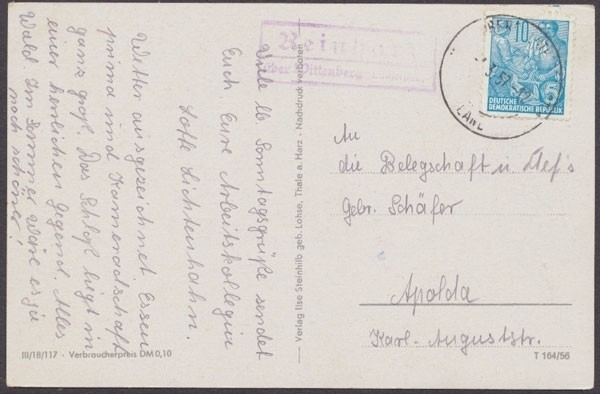 Wetter ausgezeichnet. Essen
prima und Kameradschaft
ganz groß. Das Schloß liegt in
einer herrlichen Gegend. Alles
Wald. Im Sommer wäre es ja
noch schöner!
Viele lb. Sonntagsgrüße sendet
Euch Eure Arbeitskollegin
Lotte Lichtenhahn.
III/18/117 · Verbraucherpreis DM 0,10
Verlag Ilse Steinhilb geb. Lohse, Thale a. Harz · Nachdruck verboten
über Wittenberg
10
5
DEUTSCHE
DEMOKRATISCHE REPUBLIK
LAND
An
die Belegschaft u. Chef's
Gebr. Schäfer
Apolda
Karl-Auguststr.
T 164/56